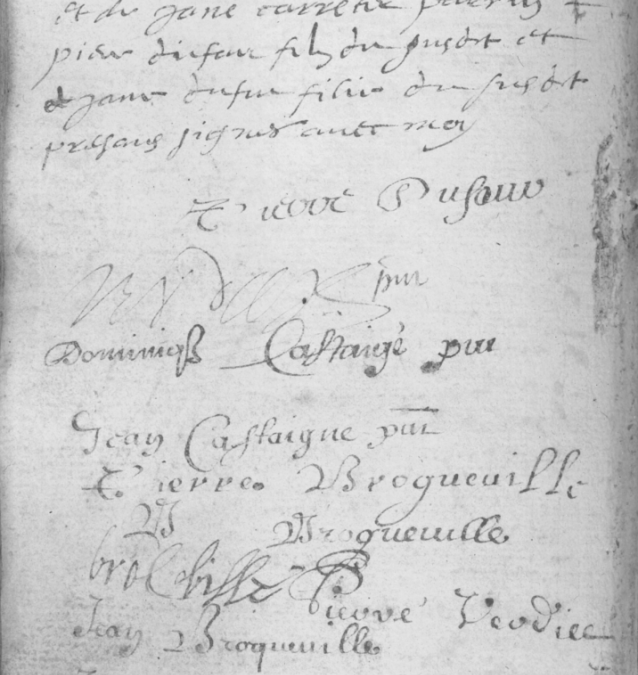 et de jane carrere
pierre dufour filz du susdit et
de jane dufur fillie du susdit
presans signes avec moy
Pierre Dufour
pnt
Dominiqs Castaigè pnt
Jean Castaigne pnt
Pierre Brogueville
Brogueville
Pierre Verdier
Jean Broqueville